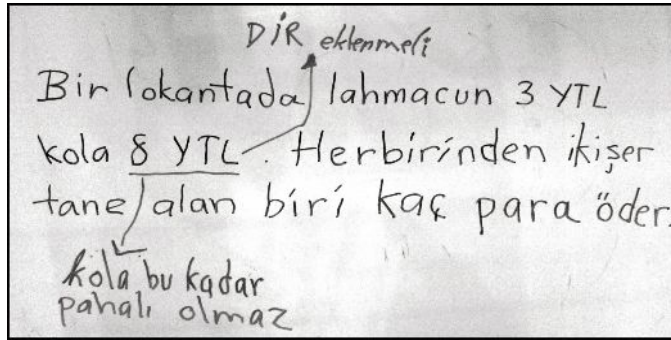 DİR eklenmeli
Bir lokantada lahmacun 3 YTL
kola 8 YTL. Herbirinden ikişer
tane alan biri kaç para öder.
kola bu kadar
pahalı olmaz